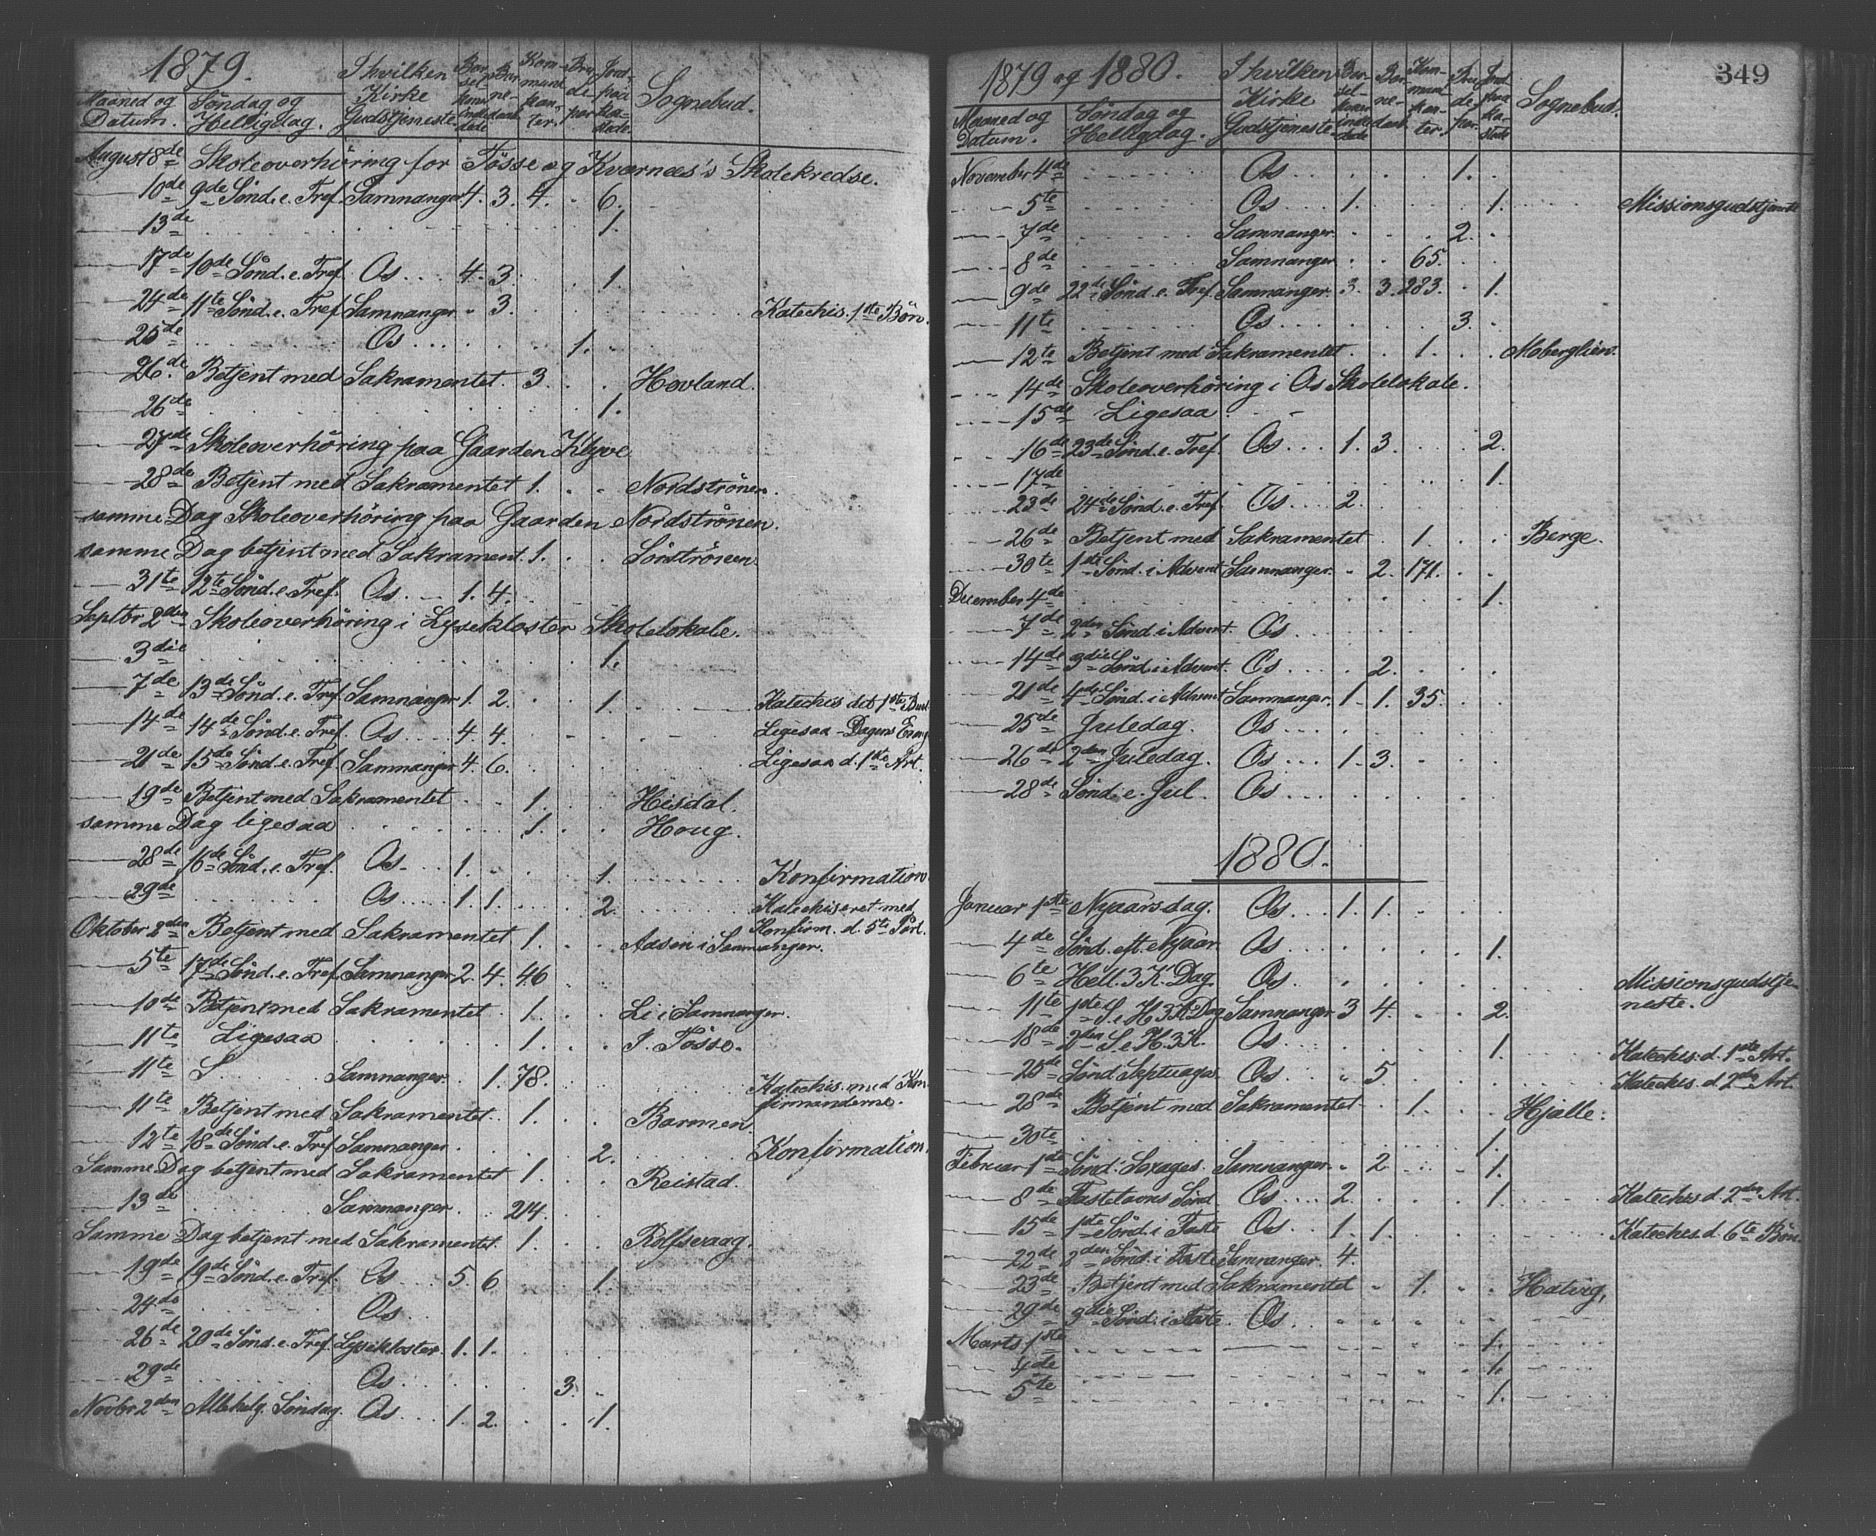 1879.
Maaned og Datum. Søndag og Helligdag. I hvilken Kirke Gudstjeneste Barselkoner indledede Barnedaab Kommunikanter. Brudepar Jordpaakastede. Sognebud.
August 8de Skoleoverhøring for Tøsse og Kvernæs's Skolekredse.
10de 9de Sønd. e. Tref. Samnanger 4. 3. 4. 6.
13de 1.
17de 10de Sønd. e. Tref. Os 4. 3. 1.
24de 11te Sønd. e. Tref. Samnanger 3. Katechis. 1ste Bøn.
25de Os 1.
26de Betjent med Sakramentet. 3. Hovland.
26de 1.
27de Skoleoverhøring paa Gaarden Klyve
28de Betjent med Sakramentet 1. Nordstrønen.
samme Dag Skoleoverhøring paa Gaarden Nordstrønen.
samme Dag betjent med Sakrament. 1. Sørstrønen
31te 12te Sønd. e. Tref. Os. 1. 4.
Septbr 2den Skoleoverhøring i Lysekloster Skolelokale.
3die 1.
7de 13de Sønd. e. Tref. Samnanger 1. 2. 1. Katechis det 1ste Bud
14de 14de Sønd. e. Tref. Os 4. 4. Ligesaa Dagens Evang
21de 15de Sønd. e. Tref. Samnanger 4. 6. Ligesaa d. 1ste Art.
19de Betjent med Sakramentet 1. Hisdal.
samme Dag ligesaa 1. Houg.
28de 16de Sønd. e. Tref. Os. 1. 1. Konfirmation.
29de Os 1. 1. 2. Katechiseret med
Konfirm. d. 5te Part.
Oktober 2den Betjent med Sakramentet 1. Aasen i Samnanger.
5te 17de Sønd. e. Tref. Samnanger 2. 4. 46
10de Betjent med Sakramentet 1. Li i Samnanger.
11te Ligesaa 1. I. Tøsse.
11te Samnanger. 1. 78. Katechis. med Kon-
firmanderne.
11te Betjent med Sakramentet. 1. Barmen
12te 18de Sønd. e. Tref. Samnanger. 2. Konfirmation.
Samme Dag betjent med Sakramentet 1. Reistad.
13de Samnanger. 214.
Samme Dag betjent med Sakramentet. 1. Rolfsvaag.
19de 19de Sønd. e. Tref. Os 5. 6 1.
24de Os.
26de 20de Sønd. e. Tref. Lysekloster. 1. 1.
29de Os 3.
Novbr 2den Allehelg. Søndag. Os 1. 2. 1.
349
1879 og 1880.
Maaned og Datum. Søndag og Helligdag. I hvilken Kirke Gudstjeneste Barselkoner indledede Barnedaab Kommunikanter. Brudepar. Jordpaakastede Sognebud.
November 4de Os 1.
5te Os 1. 1. Missionsgudstjeneste
7de Samnanger. 2.
8de Samnanger 65.
9de 22de Sønd. e. Tref. Samnanger. 3. 3. 283. 1.
11te Os 3.
12te Betjent med Sakramentet 1. Moberglien.
14de Skoleoverhøring i Os Skolelokale.
15de Ligesaa
16de 23de Sønd. e. Tref. Os 1. 3. 2.
17de 1.
23de 24de Sønd. e. Tref. Os 2.
26de Betjent med Sakramentet 1. Berge.
30te 1ste Sønd. i Advent Samnanger. 2. 171.
December 4de 1.
7de 2den Sønd. i Advent. Os
14de 3die Sønd. i Advent. Os 2.
21de 4de Sønd. i Advent Samnanger. 1. 1. 35.
25de Juledag. Os
26de 2den Juledag. Os 1. 3.
28de Sønd. e. Jul. Os
1880.
Januar 1ste Nyaarsdag. Os 1. 1.
4de Sønd. eft. Nyaar Os 1.
6te Hell. 3 K. Dag. Os. Missionsgudstje-
neste.
11te 1ste S. e. H. 3 K. Dag Samnanger 3 4. 2.
18de 2den S. e. H. 3 K. Os 1. Katechis. d. 1ste Art.
25de Sønd Septuages. Os 5 Katechis. d. 2den Art.
28de Betjent med Sakramentet 1. Hjelle.
30te 1.
Februar 1ste Sønd. Sexages. Samnanger 2 1.
8de Fastelavns Sønd. Os 2. 1. Katechis d. 2den Art.
15de 1ste Sønd. i Faste Os. 1. 1. Katechis d. 6te Bøn.
22de 2den Sønd. i Faste Samnanger. 4.
23de Betjent med Sakramentet 1. Hatvig,
29de 3die Sønd. i Faste. Os.
Marts 1ste 1.
4de 1.
5te 1.